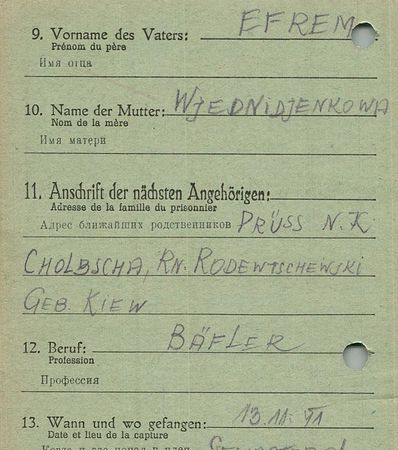 9. Vorname des Vaters: EFREM
Prénom du père
Имя отца
10. Name der Mutter: WJEDNIDJENKOWA
Nom de la mère
Имя матери
11. Anschrift der nächsten Angehörigen:
Adresse de la famille du prisonnier
Адрес ближайших родственников PRÜSS N.K
CHOLBSCHA, RN. RODEWTSCHEWSKI
GEB. KIEW
12. Beruf: BÄFLER
Profession
Профессия
13. Wann und wo gefangen: 13.11.41
Date et lieu de la capture